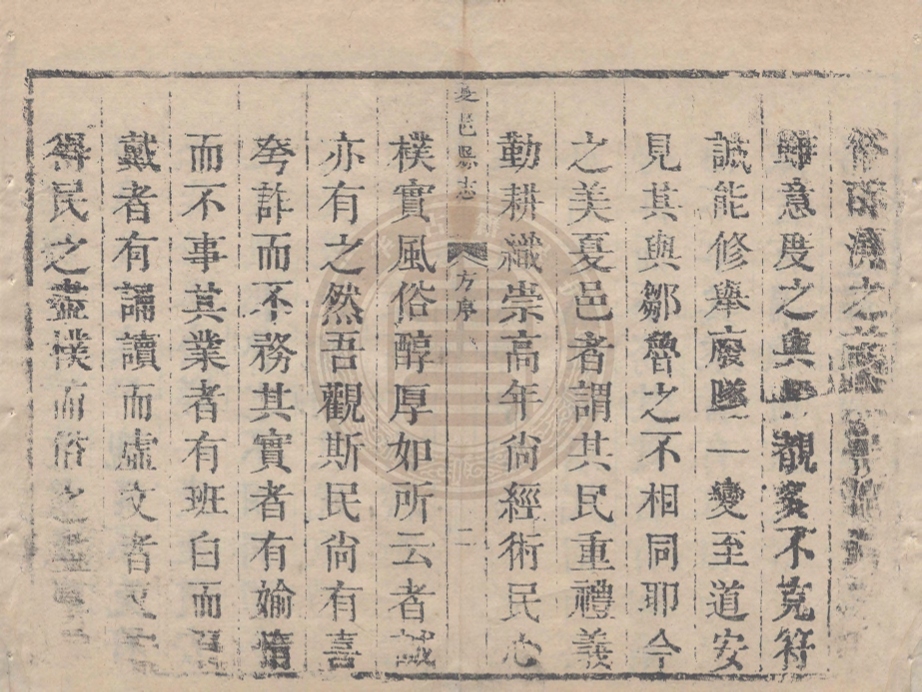 俗之
雖意度之與觀多不克符
誠能修舉廢墜一變至道安
見其與鄒魯之不相同耶今
之美夏邑者謂其民重禮義
勤耕織崇高年尚經術民心
夏邑縣志 方序 二
樸實風俗醇厚如所云者誠
亦有之然吾觀斯民尚有喜
夸詐而不務其實者有婾惰
而不事其業者有班白而負
戴者有誦讀而虛文者又安
得民之盡樸而俗之